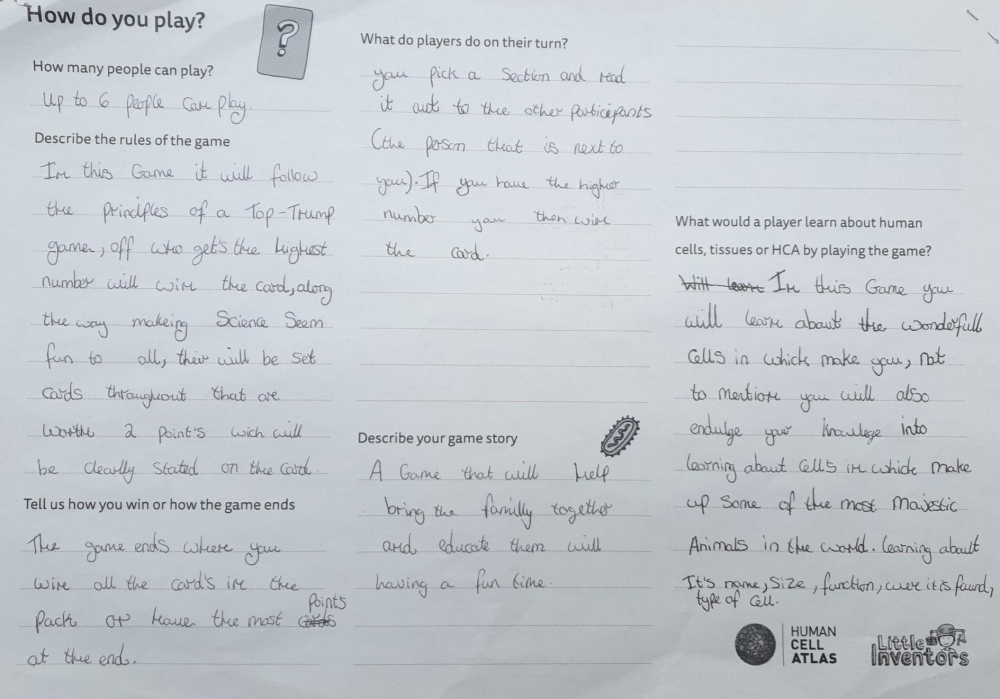 How do you play?
?
How many people can play?
Up to 6 people can play.
Describe the rules of the game
In this Game it will follow
the principles of a Top-Trump
game, off who get's the highest
number will win the card, along
the way makeing Science Seem
fun to all, their will be set
cards throughout that are
worth 2 point's wich will
be clearlly stated on the card.
Tell us how you win or how the game ends
The game ends when you
win all the card's in the
Points
Pack or have the most cards
at the end.
What do players do on their turn?
you pick a Section and read
it out to the other participants
(the person that is next to
you). If you have the higher
number you then win
the card.
Describe your game story
A Game that will help
bring the familly together
and educate them will
having a fun time.
What would a player learn about human
cells, tissues or HCA by playing the game?
Will learn In this Game you
will learn about the wonderfull
Cells in which make you, not
to mention you will also
endulge your knowlege into
learning about Cells in which Make
up Some of the most Majestic
Animals in the world. learning about
It's name, Size, function, were it is found,
type of Cell.
HUMAN
CELL
ATLAS
Little
Inventors